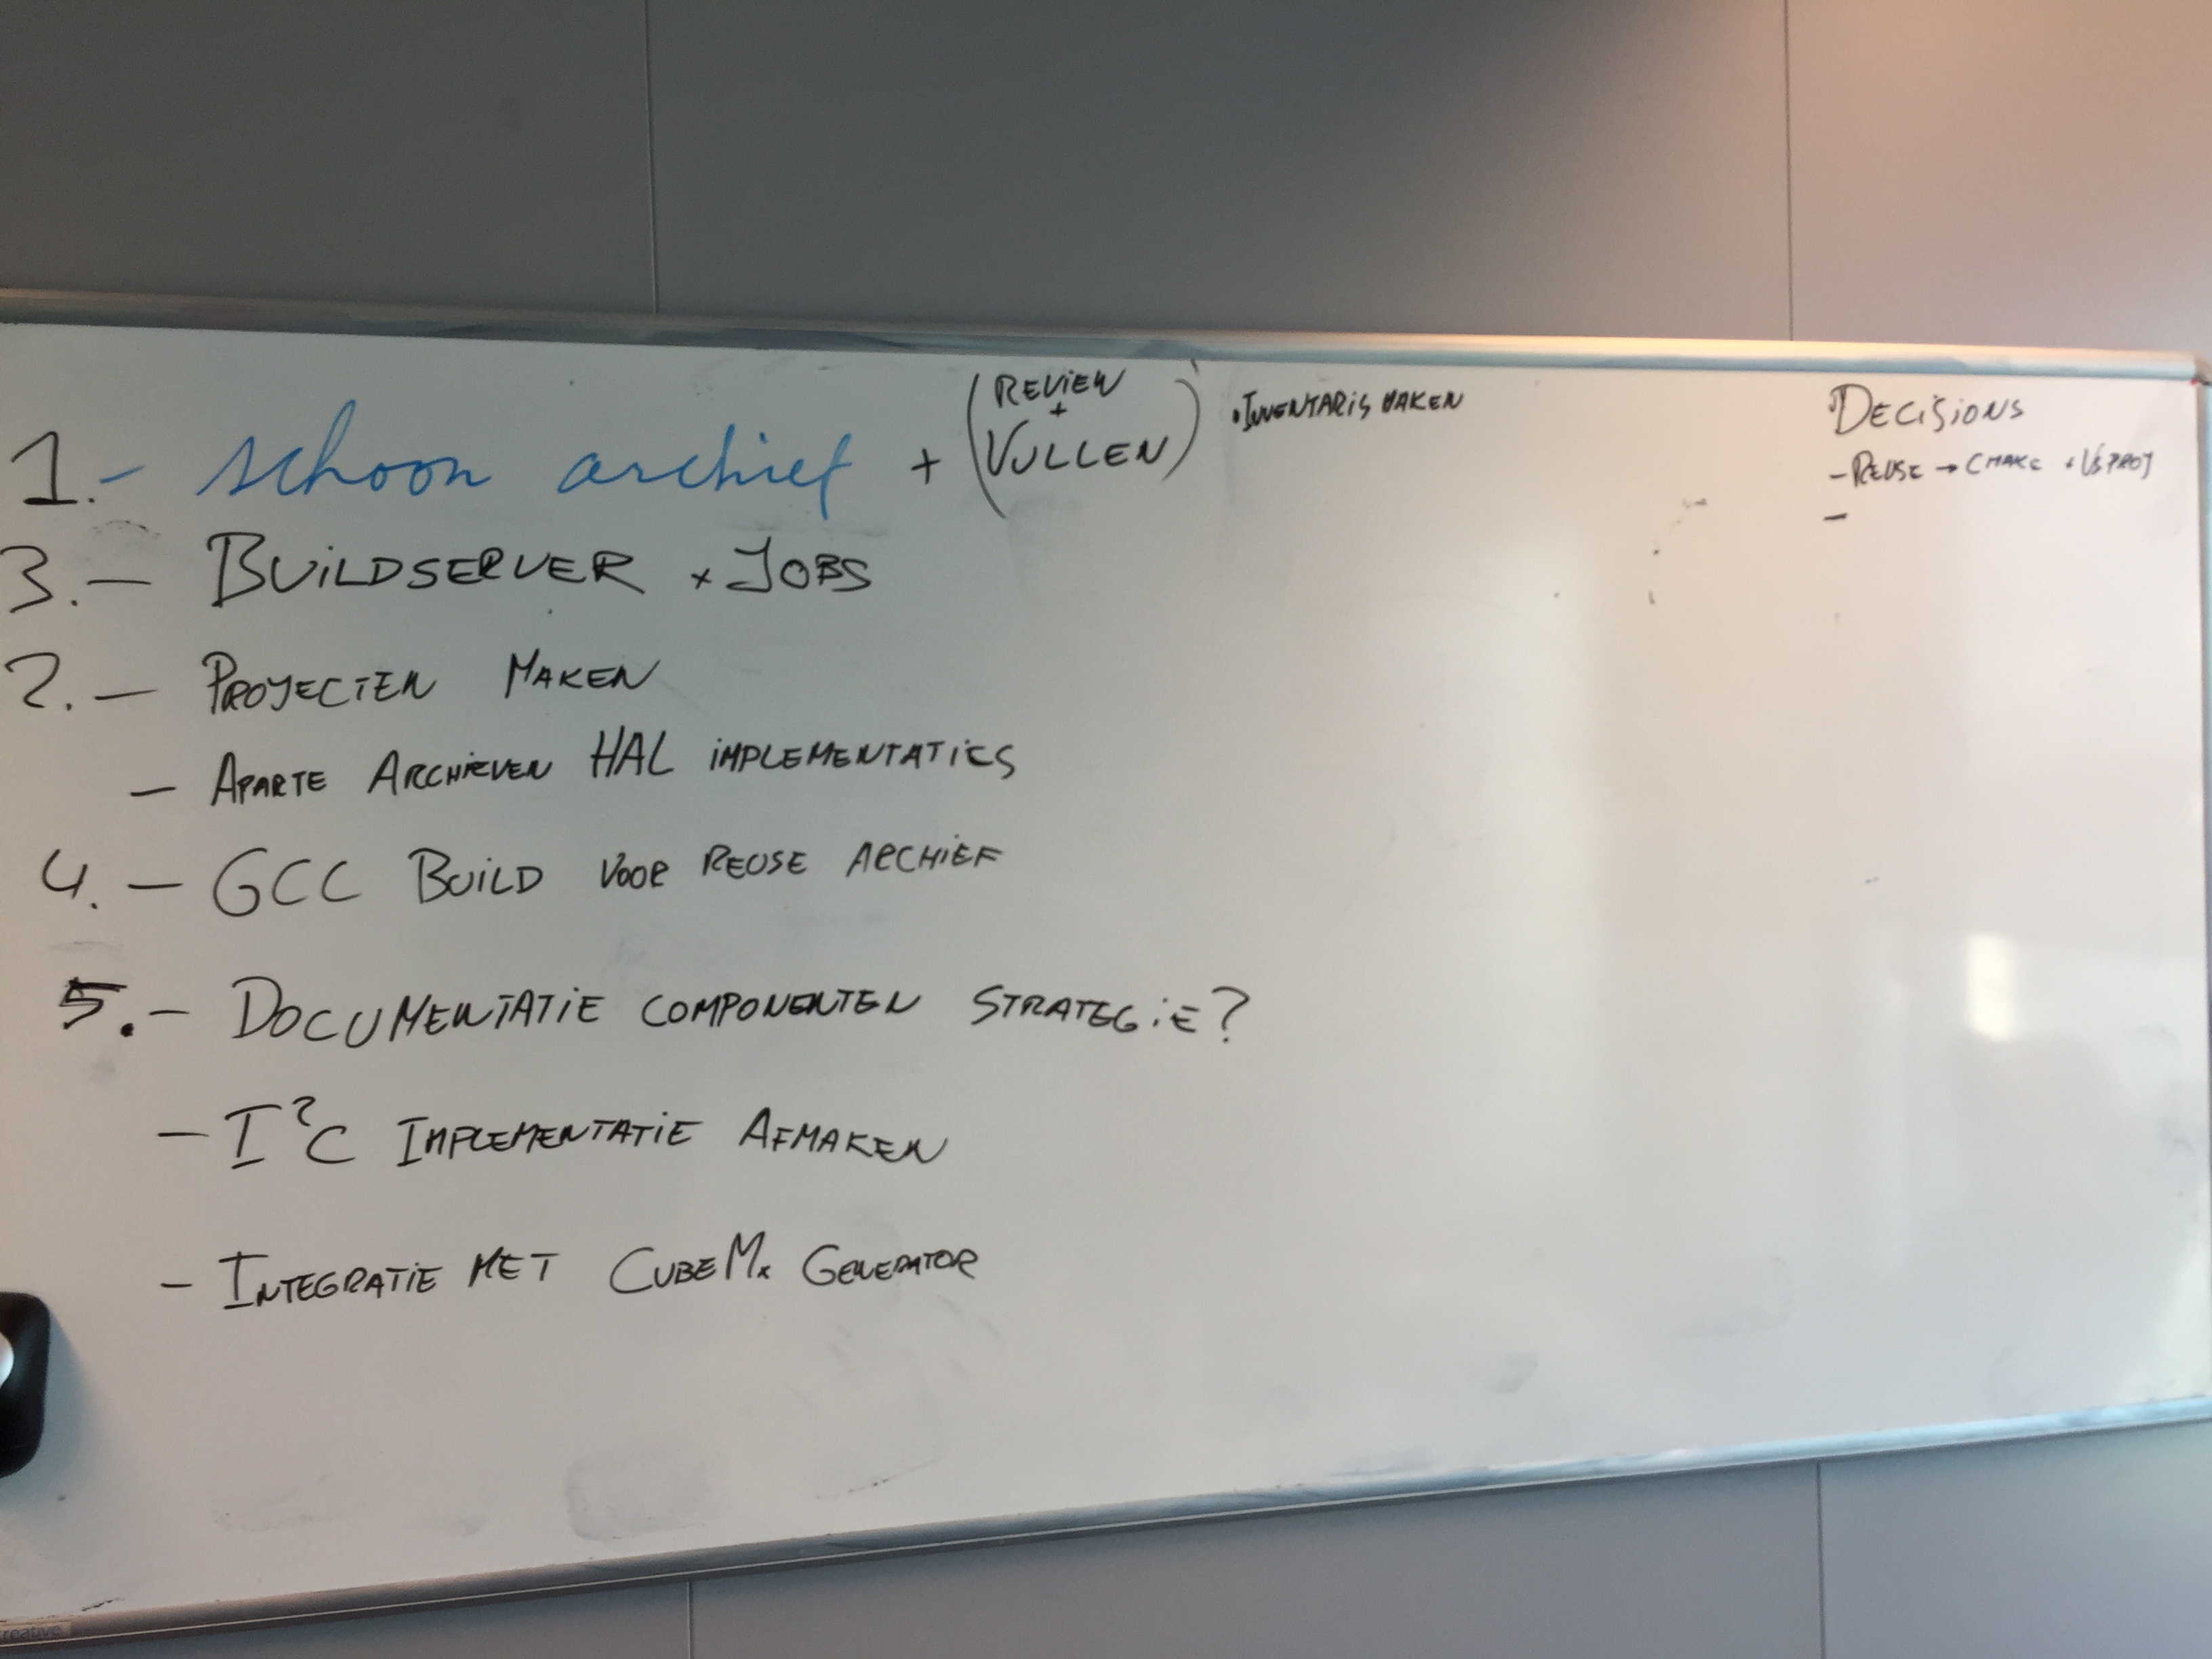 REVIEW
+
1.- schoon archief + (VULLEN) • INVENTARIS MAKEN
3.- BUILDSERVER + JOBS
2.- PROJECTEN MAKEN
- APARTE ARCHIEVEN HAL IMPLEMENTATIES
4.- GCC BUILD VOOR REUSE ARCHIEF
5.- DOCUMENTATIE COMPONENTEN STRATEGIE?
- I²C IMPLEMENTATIE AFMAKEN
- INTEGRATIE MET CUBEMX GENERATOR
DECISIONS
- REUSE → CMAKE + VSPROJ
-
reative